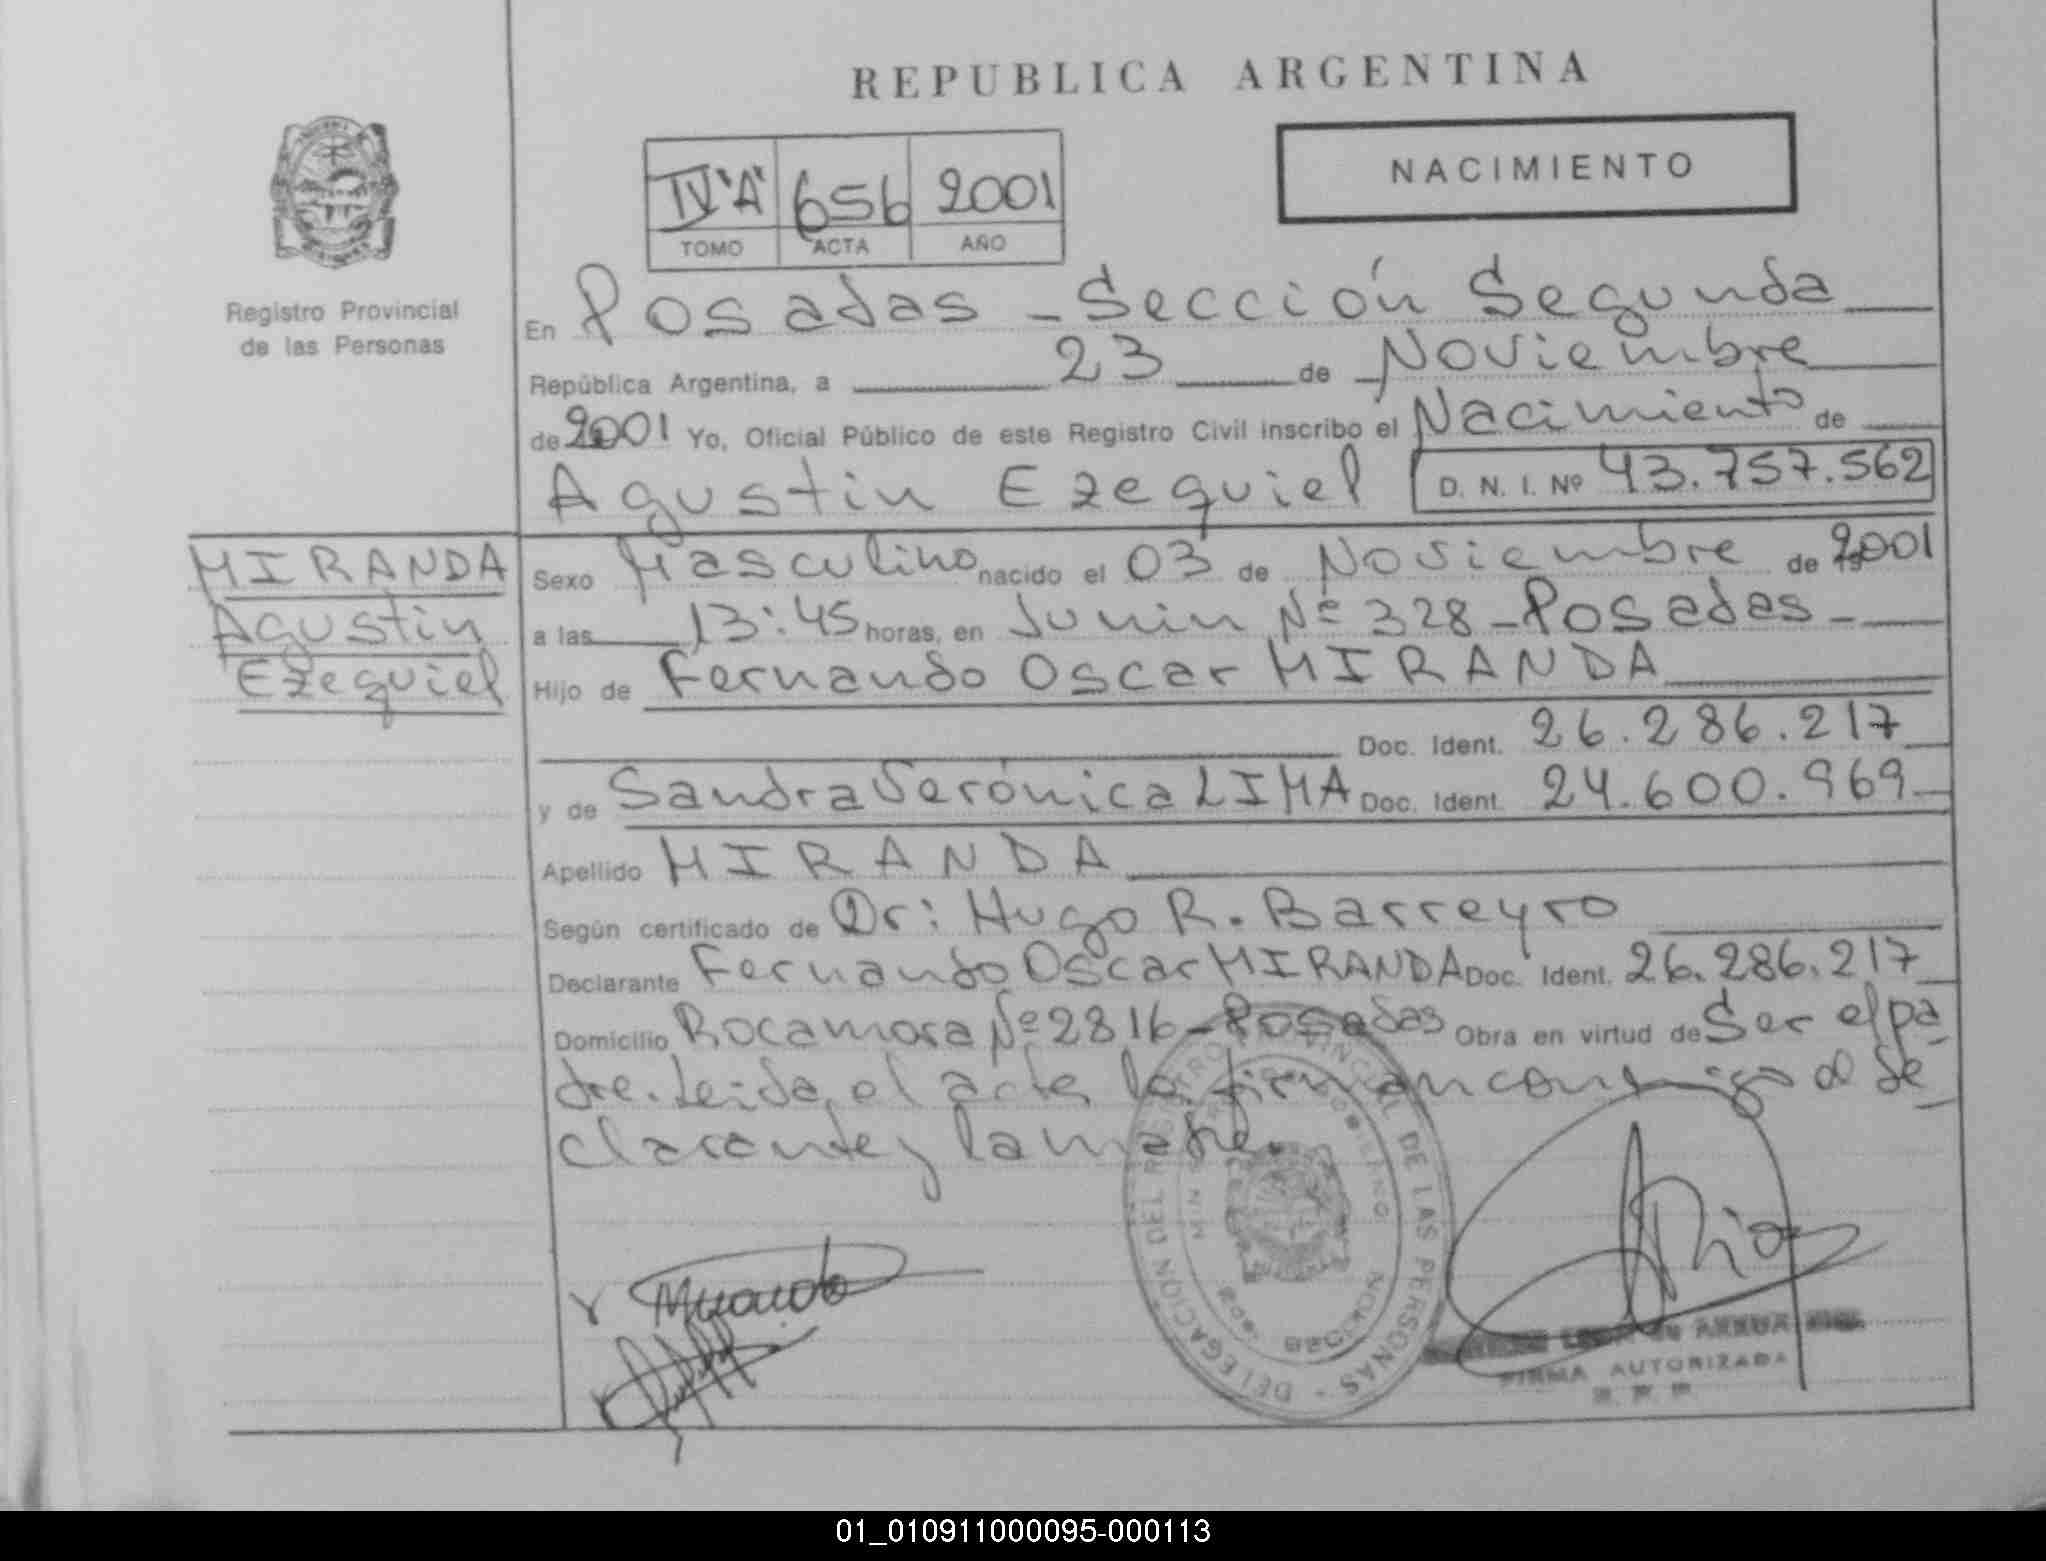 REPUBLICA ARGENTINA
NACIMIENTO
IV "A" 656 2001
TOMO ACTA AÑO
Registro Provincial
de las Personas
En Posadas - Sección Segunda
República Argentina, a 23 de Noviembre
de 2001 Yo, Oficial Público de este Registro Civil inscribo el Nacimiento de
Agustin Ezequiel D. N. I. Nº 43.757.562
MIRANDA
Agustin
Ezequiel
Sexo Masculino nacido el 03 de Noviembre de 2001
a las 13:45 horas, en Junin Nº 328 - Posadas -
Hijo de Fernando Oscar MIRANDA
Doc. Ident. 26.286.217
y de Sandra Verónica LIMA Doc. Ident. 24.600.969
Apellido MIRANDA
Según certificado de Dr: Hugo R. Barreyro
Declarante Fernando Oscar MIRANDA Doc. Ident. 26.286.217
Domicilio Rocamora Nº 2816 - Posadas Obra en virtud de Ser el pa
dre. Leida el acta la firman conmigo el de
clarante y la madre.
DELEGACION DEL REGISTRO PROVINCIAL DE LAS PERSONAS
SECCION
Miranda
FIRMA AUTORIZADA
01_010911000095-000113